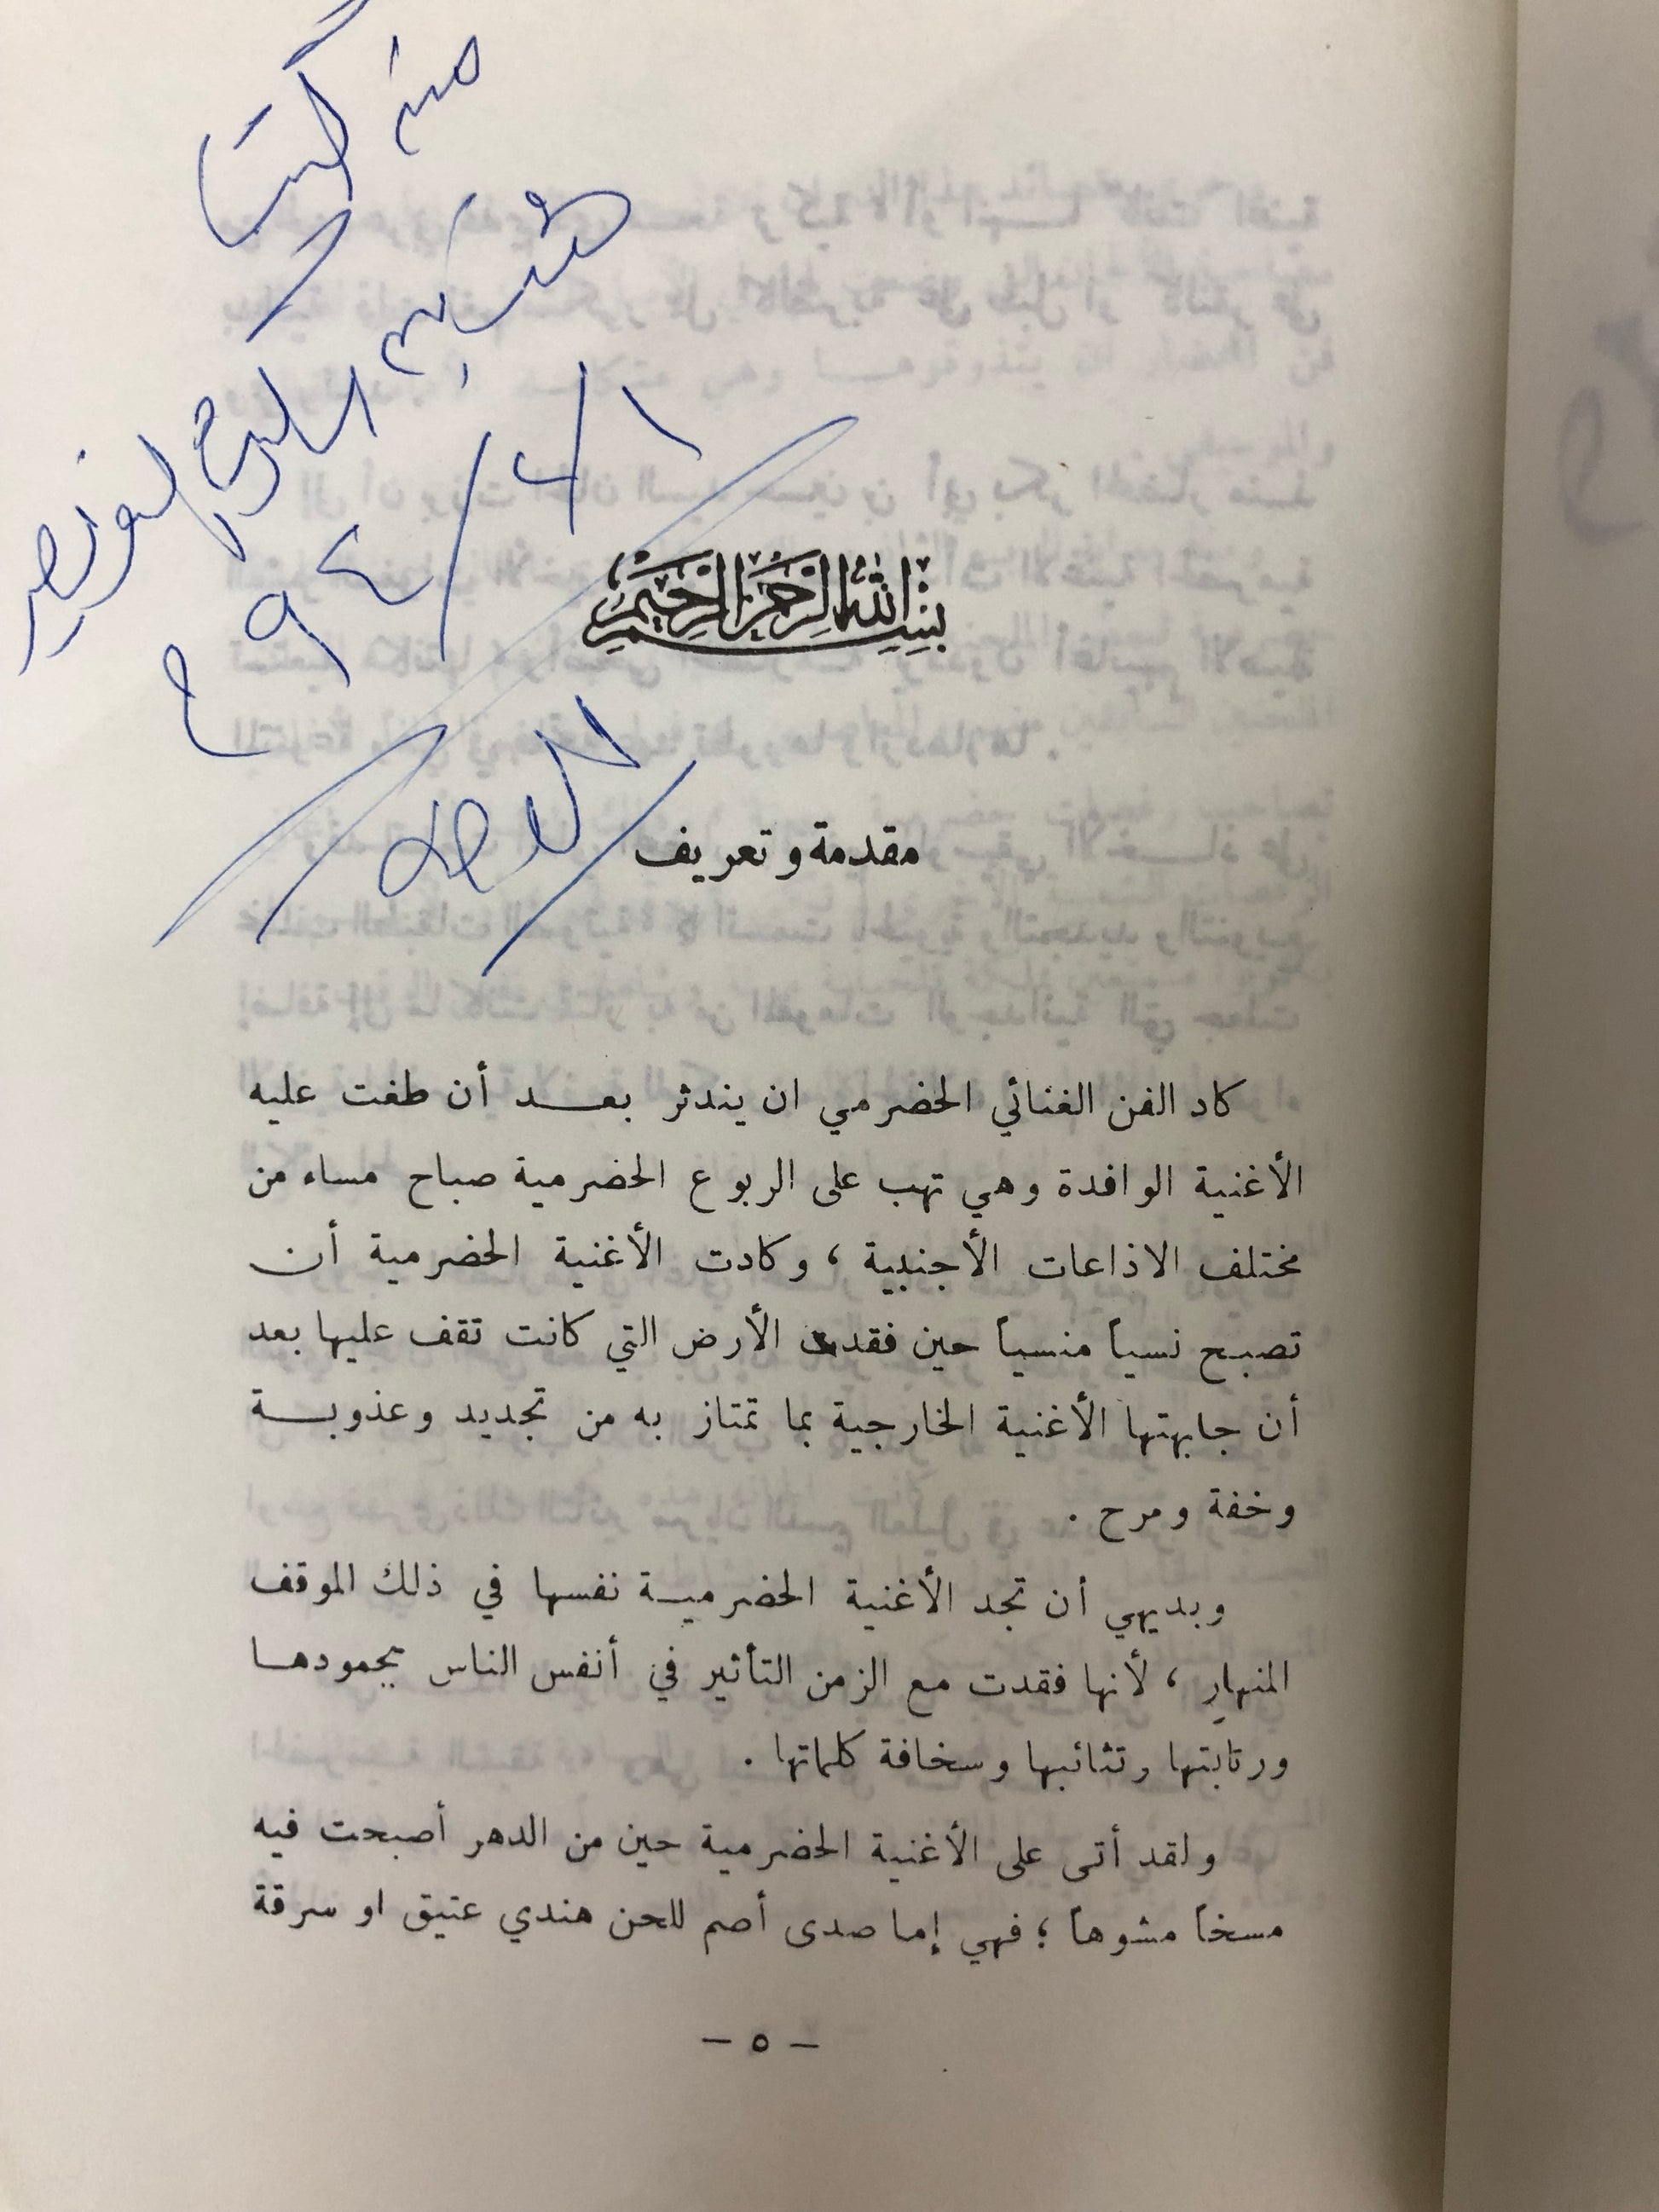 بسم الله الرحمن الرحيم
مقدمة وتعريف
كاد الفن الغنائي الحضرمي ان يندثر بعد أن طغت عليه
الأغنية الوافدة وهي تهب على الربوع الحضرمية صباح مساء من
مختلف الاذاعات الأجنبية ، وكادت الأغنية الحضرمية أن
تصبح نسياً منسياً حين فقدت الأرض التي كانت تقف عليها بعد
أن جابهتها الأغنية الخارجية بما تمتاز به من تجديد وعذوبة
وخفة ومرح .
وبديهي أن تجد الأغنية الحضرمية نفسها في ذلك الموقف
المنهار ، لأنها فقدت مع الزمن التأثير في أنفس الناس بجمودها
ورتابتها وتثائبها وسخافة كلماتها .
ولقد أتى على الأغنية الحضرمية حين من الدهر أصبحت فيه
مسخاً مشوهاً ؛ فهي إما صدى أصم للحن هندي عتيق او سرقة
– ٥ –